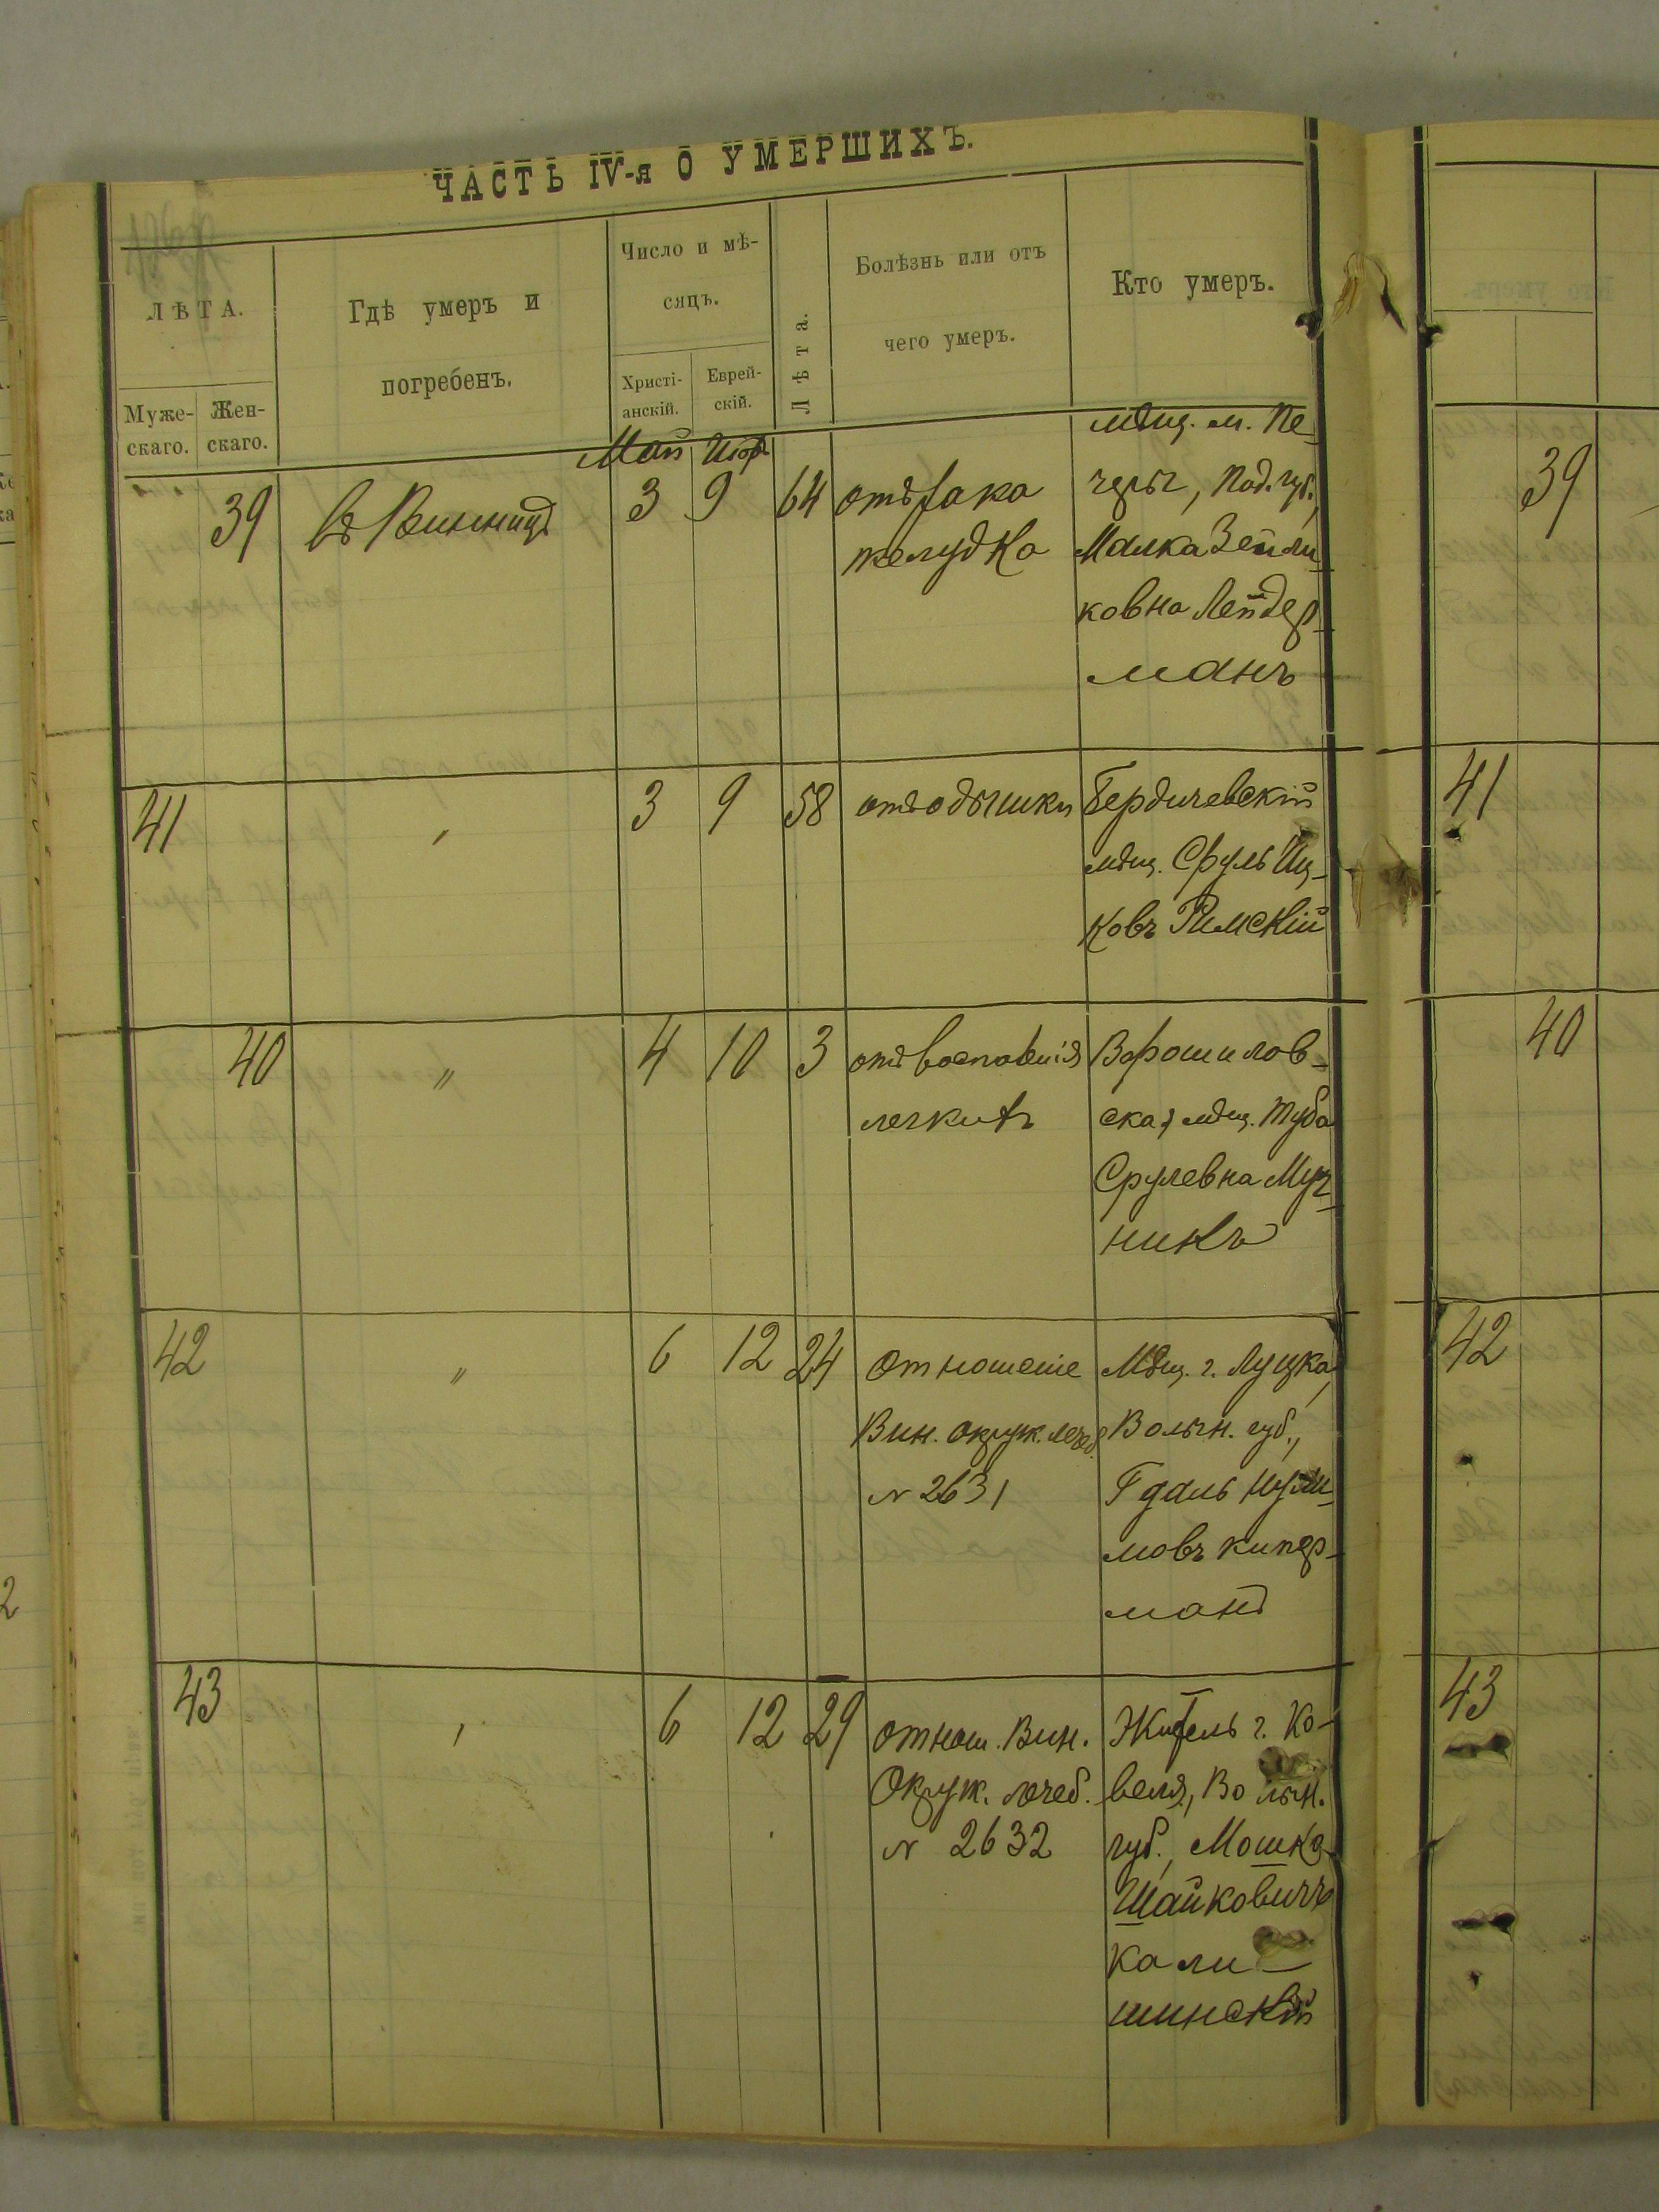 ЧАСТЬ IV-я О УМЕРШИХЪ.
ЛѢТА.
Муже-
скаго.
Жен-
скаго.
Гдѣ умеръ и
погребенъ.
Число и мѣ-
сяцъ.
Христі-
анскій.
Еврей-
скій.
Лѣта.
Болѣзнь или отъ
чего умеръ.
Кто умеръ.
Май Іюръ
39 въ Винницѣ 3 9 64 отъ рака
желудка
мѣщ. м. Пе-
черы, Под. губ.,
Малка Зейли-
ковна Лейдер-
манъ
41 " 3 9 58 отъ одышки
Бердичевскій
мѣщ. Сруль Иц-
ковъ Римскій
40 " 4 10 3 отъ воспаленія
легкихъ
Ворошилов-
ская мѣщ. Туба
Срулевна Муч-
никъ
42 " 6 12 24 отношеніе
Вин. окруж. лечеб.
№ 2631
Мѣщ. г. Луцка,
Волын. губ.,
Гдаль
мовъ Кипер-
манъ
43 " 6 12 29 отнош. Вин.
Окруж. лечеб.
№ 2632
Житель г. Ко-
веля, Волын.
губ., Мошко
Шайковичъ
Кали-
шинскій
39
41
40
42
43